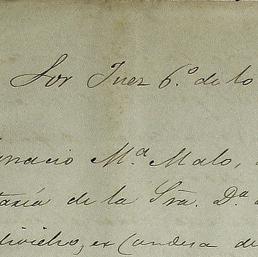 Sor Juez 6.º de lo
gnacio M.ª Malo,
taría de la Sra. D.ª
ex Condesa de